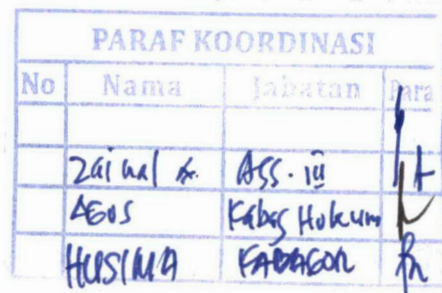 PARAF KOORDINASI
No Nama Jabatan Para
Zainal A. Ass. III
AGUS Kabag Hukum
HUSIMA KABAGOR